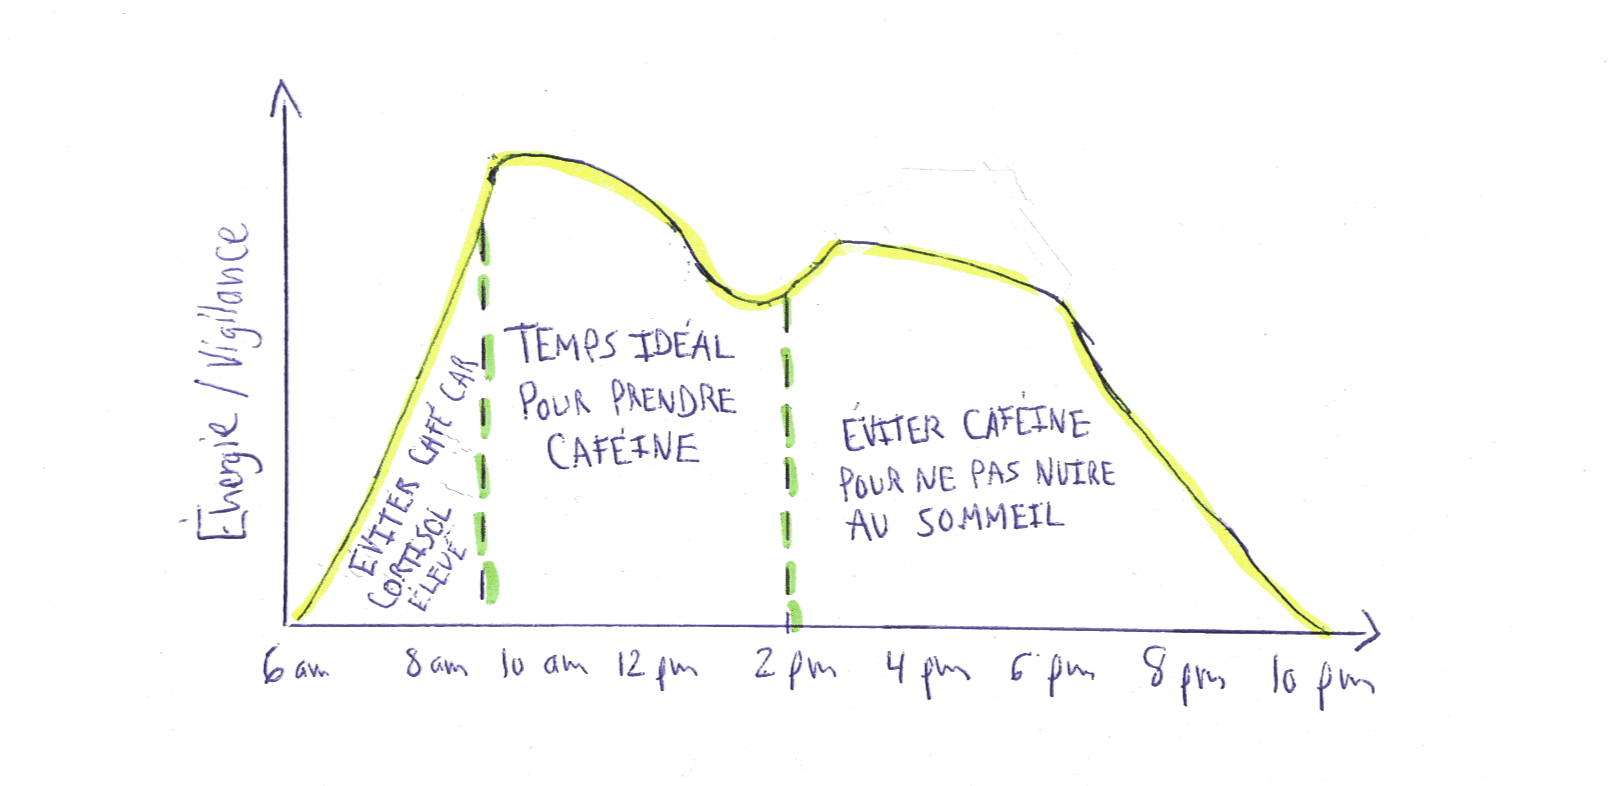 Énergie / Vigilance
ÉVITER CAFÉ CAR
CORTISOL
ÉLEVÉ
TEMPS IDÉAL
POUR PRENDRE
CAFÉINE
ÉVITER CAFÉINE
POUR NE PAS NUIRE
AU SOMMEIL
6 am 8 am 10 am 12 pm 2 pm 4 pm 6 pm 8 pm 10 pm